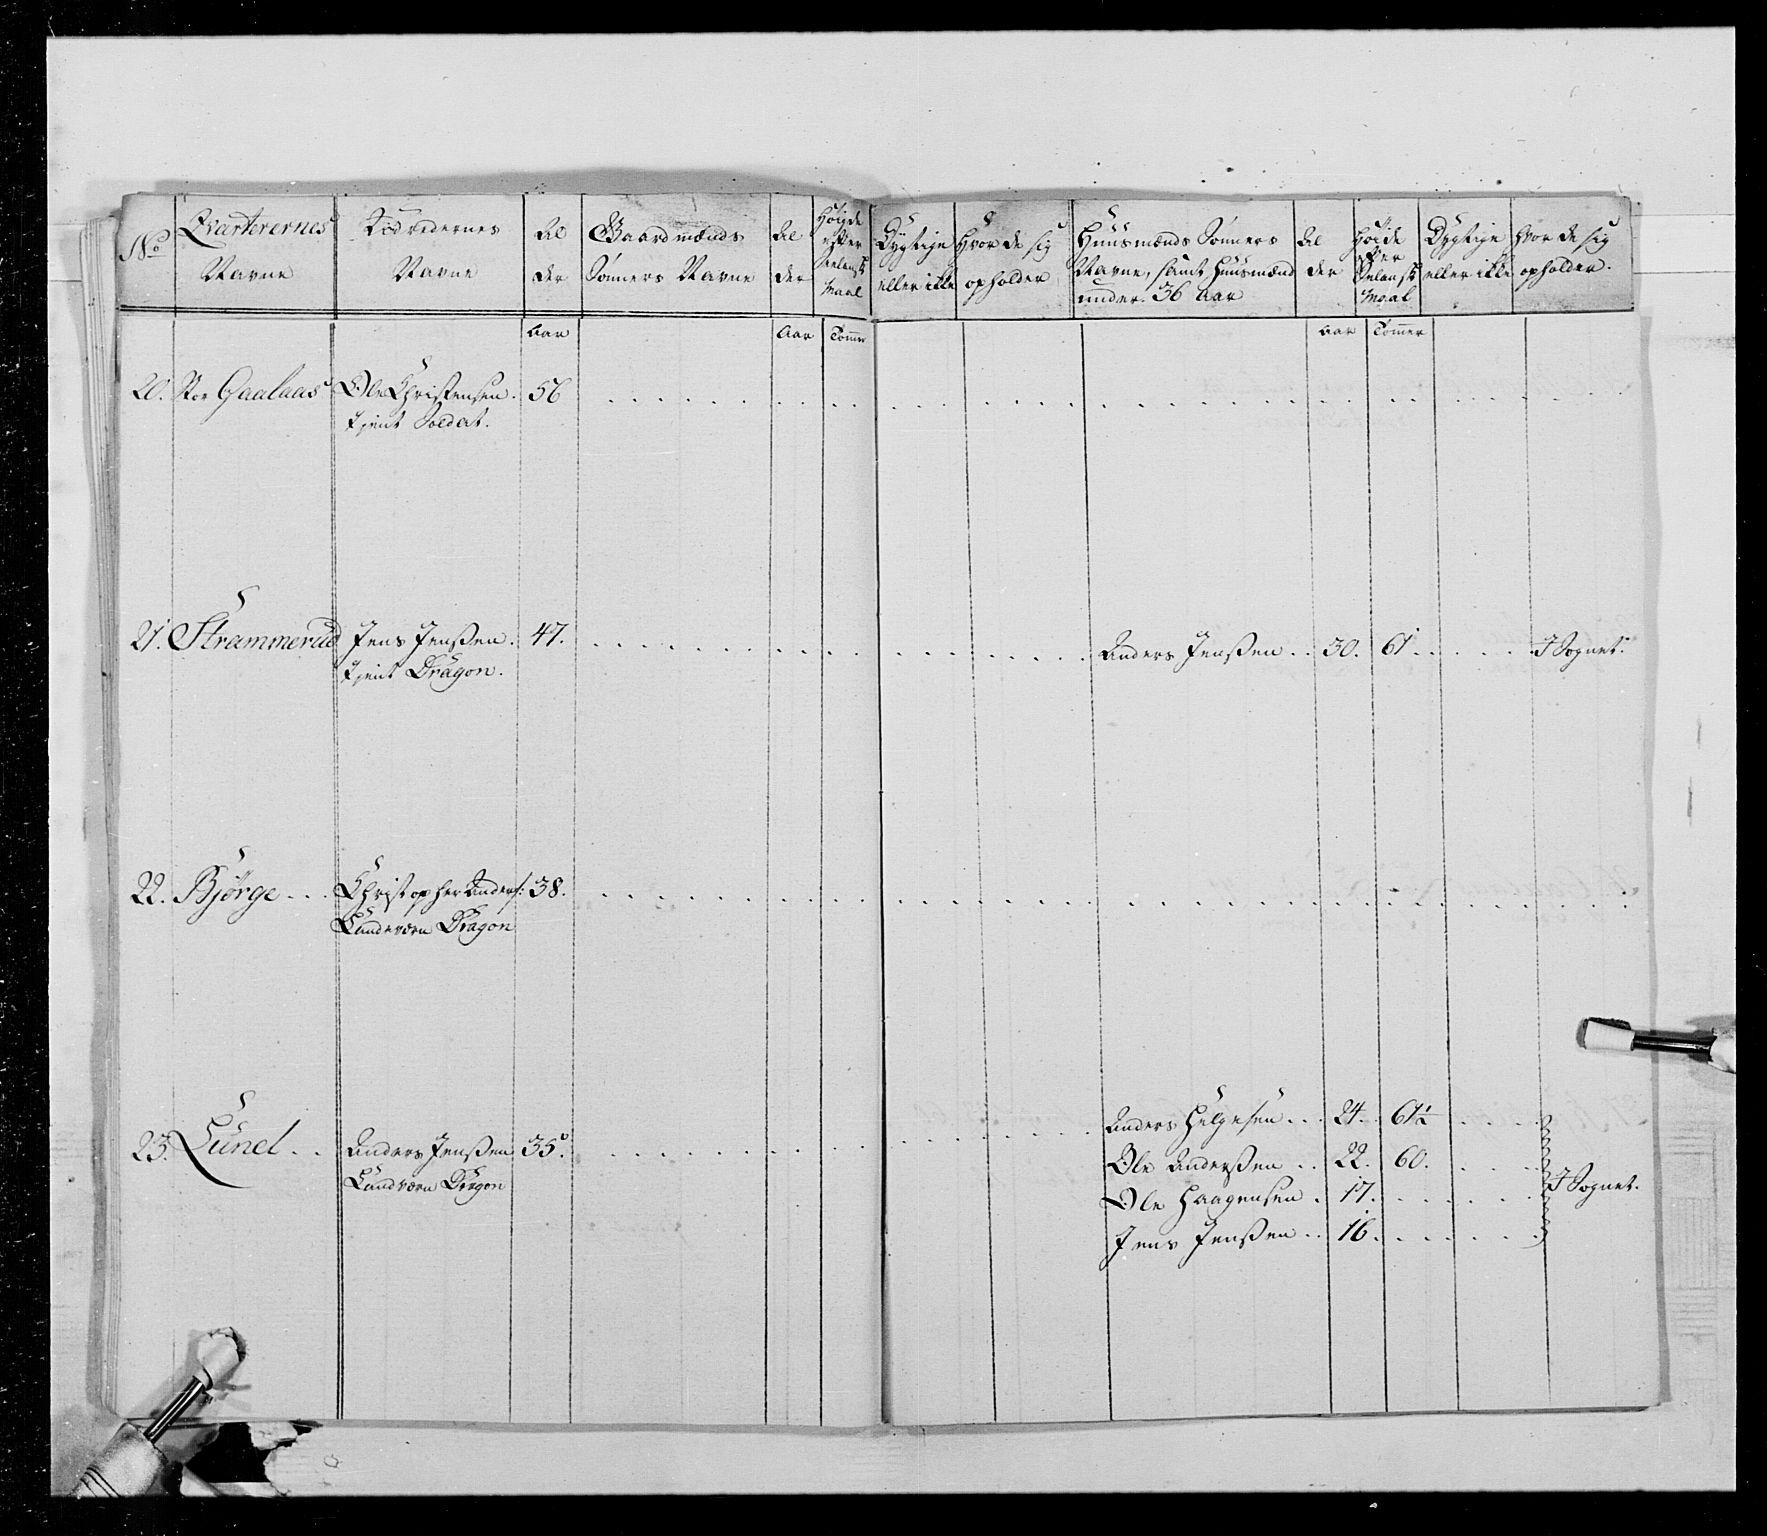 No
Qvarterernes
Navne
Rodredernes
Navne
Al
der
Gaardmænds
Sønners Navne
Al
der
Høyde
efter
Selansk
Maal
Dygtige
eller ikke
Hvor de sig
opholder
Huusmænds Sønners
Navne, samt Huusmænd
under 36 Aar
Al
der
Høide
efter
Selansk
Maal
Dygtige
eller ikke
hvor de sig
opholder.
Aar
Aar
Tomer
Aar
Tomer
20. Stor Gaalaas Ole Christensen. 56
Tjent Soldat.
21. Strammerud Jens Jenssen. 47. Anders Jenssen . . 30. 61 I Sognet.
Tjent Dragon.
22. Bjørge . . . Christopher Anders: 38.
Landværn Dragon
23. Lunel . . Anders Jenssen 35.
Landværn Dragon
Anders Helgesen . . . 24. 61½
Ole Anderssen . . 22. 60.
Ole Haagensen . 17. I Sognet.
Jens Jenssen . . 16.